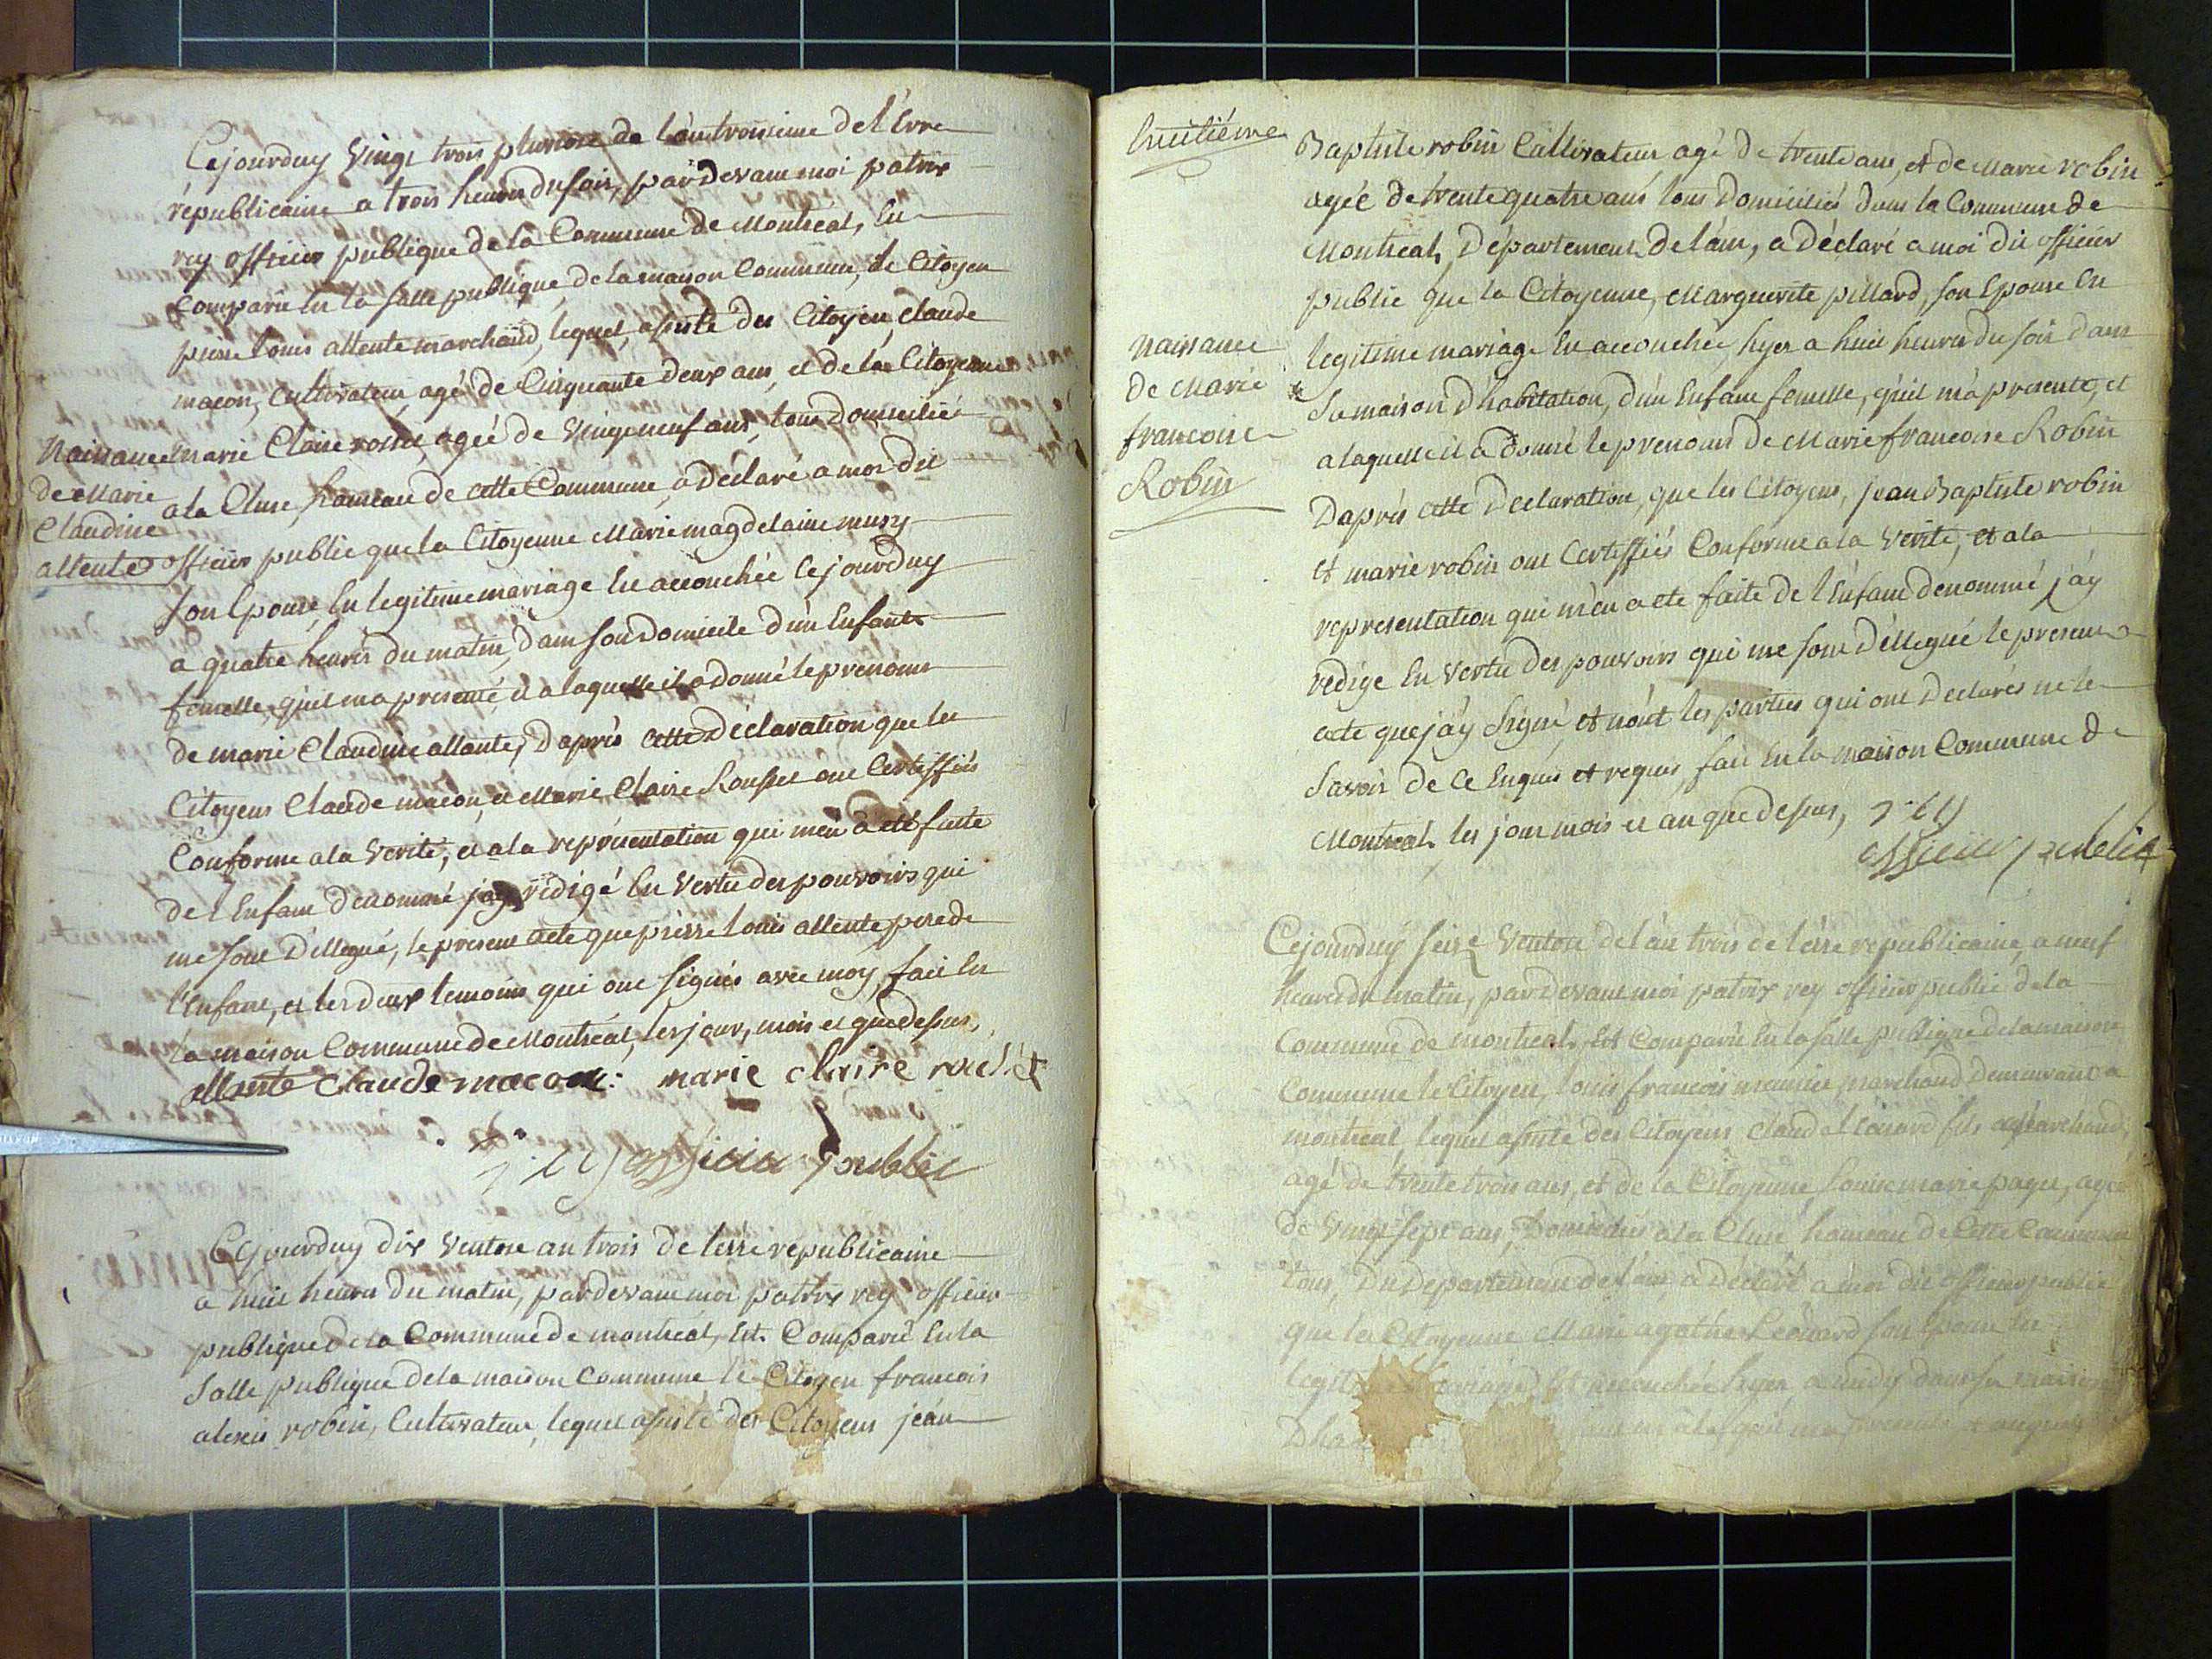 Cejourduy vingt trois pluviose de l'an troisieme de l'Erre
républicaine a trois heures du soir, pardevant moi patrix
rey officier publique de la Commune de Montreal, Est
Comparu En la salle publique de la maison Commune, le Citoyen
pierre louis allente marchand, lequel, assisté des Citoyen, claude
macon, Cultivateur, agé de Cinquante deux ans, et de la Citoyenne
Marie Claire rosset, agée de vingt neuf ans, tous domiciliés
a la Cluse, hameau de cette Commune, a déclaré a moi dit
officier public que la Citoyenne Marie magdelaine musy
son Epouse, En legitime mariage Est accouchée Cejourduy
a quatre heures du matin, dans son Domicile d'un Enfant
femelle, quil ma presenté, et a laquelle il a donné le prenoms
de marie Claudine allante, D'aprés cette Déclaration que les
Citoyens Claude macon, et Marie Claire Rousset ont Certiffiés
Conforme a la verité, et a la représentation qui m'en a eté faite
de l'Enfant dénommé j'ay rédigé En Vertu des pouvoirs qui
me sont D'éllegué, le present acte que pierre louis allente pere de
l'Enfant, et les deux temoins qui ont signés avec moy, fait En
la maison Commune de Montréal, les jour, mois et que dessus,
Naissance
de Marie
Claudine
allente
allente Claude macon marie claire rochet
rey officier public
Cejourduy dix Ventose an trois de l'érre republicaine
a huit heures du matin, pardevant moi patrix rey officier
publique de la Commune de montreal, Est Comparu En la
Salle publique de la maison Commune le Citoyen francois
alexis robin, Cultivateur, lequel assisté des Citoyens jean
huitiéme
Baptiste robin Cultivateur agé de trente ans, et de Marie robin
agée de trente quatre ans tous Domiciliés dans la Commune de
Montreal, Département de l'ain, a Déclaré a moi dit officier
public que la Citoyenne, Marguerite pillard, son Epouse En
legitime mariage Est accouchée hyer a huit heures du soir dans
Sa maison D'habitation, d'un Enfant femelle, quil m'a presenté, et
a laquelle il a Donné le prenoms de Marie francoise Robin
D'aprés cette Declaration, que les Citoyens, jean Baptiste robin
et marie robin ont Certiffiés Conforme a la Verité, et a la
representation qui m'en a eté faite de l'Enfant dénommé j'ay
redigé En Vertu des pouvoirs qui me sont D'éllegué le present
acte que j'ay Signé, et n'ont les parties qui ont Declarés ne le
Savoir de ce Enquis et requis, fait En la maison Commune de
Montreal, les jour mois et an que dessus, rey
officier public
naissance
de Marie
francoise
Robin
Cejourduy seize Ventose de l'an trois de l'érre republicaine, a neuf
heures du matin, pardevant moi patrix rey officier public de la
Commune de montreal, Est Comparu En la salle publique de la maison
Commune le Citoyen, louis francois meunier marchand demeurant a
montreal, lequel assisté des Citoyens Claude léonard fils marchand,
agé de trente trois ans, et de la Citoyenne louise marie pagès, agée
de Vingt sept ans, Domiciliés a la Cluse hameau de cette Commune
tous, du Departement de l'ain a Déclaré a moi dit officier public
que la Citoyenne Marie agathe Léonard son Epouse En
legitime mariage, Est accouchée hyer a midy dans sa maison